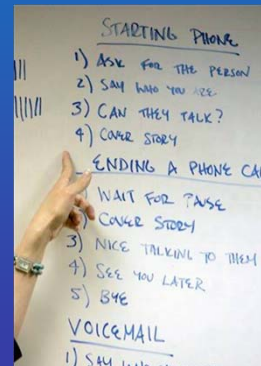 STARTING PHONE
1) ASK FOR THE PERSON
2) SAY WHO YOU ARE
3) CAN THEY TALK?
4) COVER STORY
ENDING A PHONE CA
WAIT FOR PAUSE
) COVER STORY
3) NICE TALKING TO THEM
4) SEE YOU LATER
5) BYE
VOICEMAIL
1) SAY